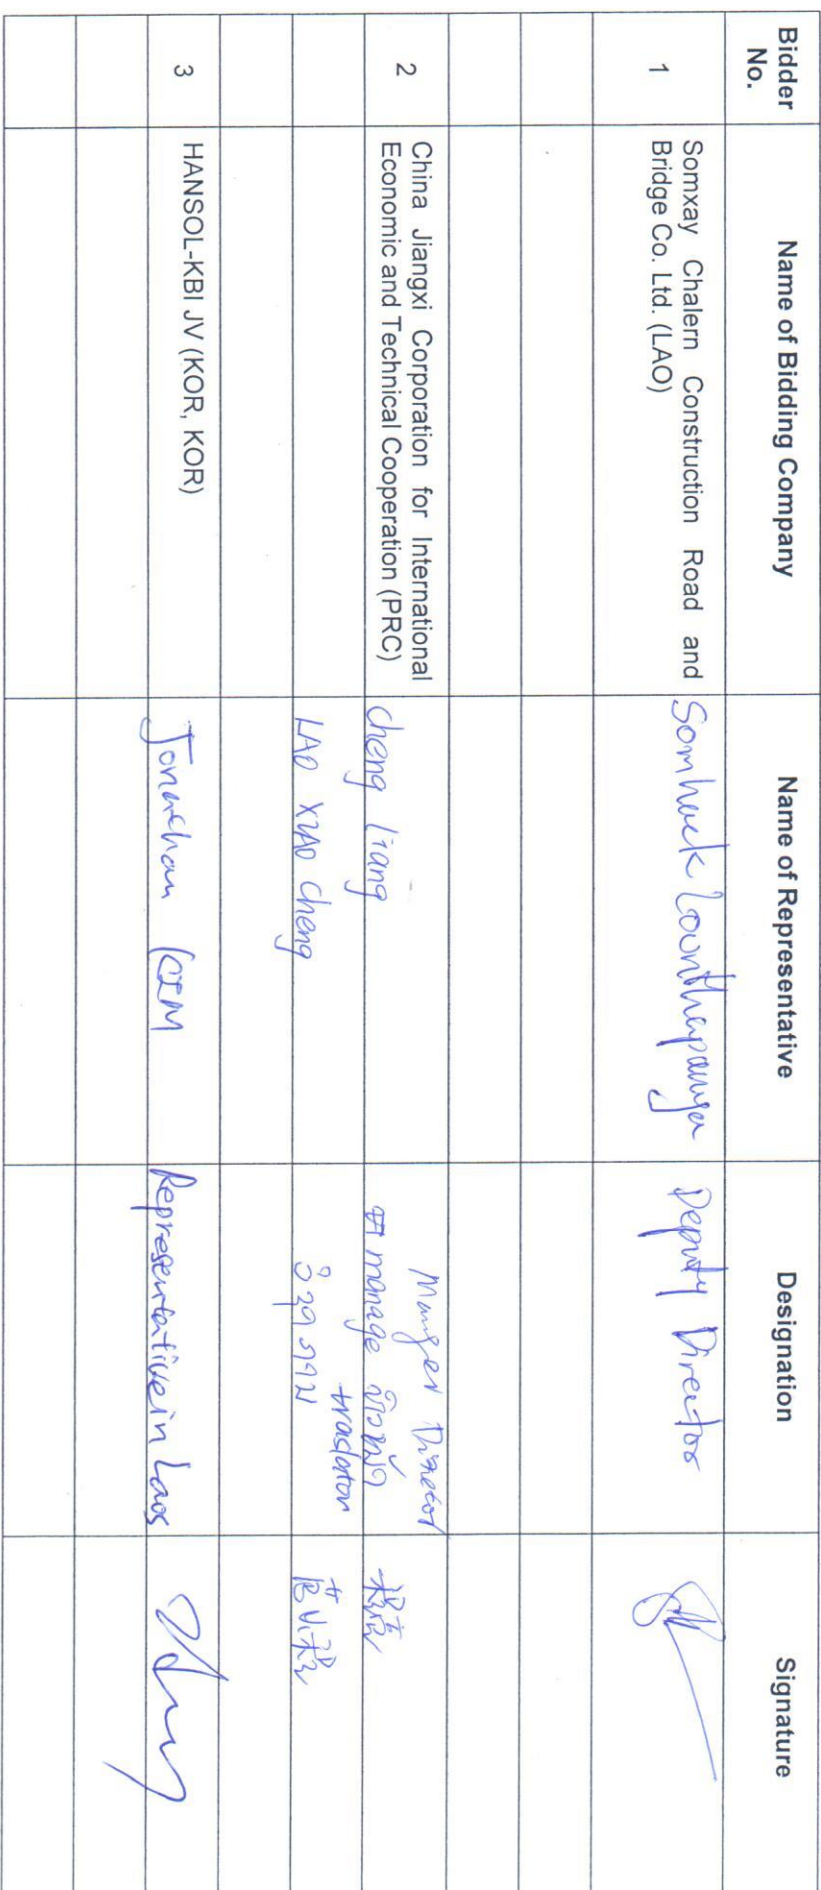 Bidder No.
Name of Bidding Company
Name of Representative
Designation
Signature
1
Somxay Chalern Construction Road and
Bridge Co. Ltd. (LAO)
Somhack
Deputy Director
2
China Jiangxi Corporation for International
Economic and Technical Cooperation (PRC)
Cheng Liang
manage
LAO XIAO Cheng
3
HANSOL-KBI JV (KOR, KOR)
Representative in Laos